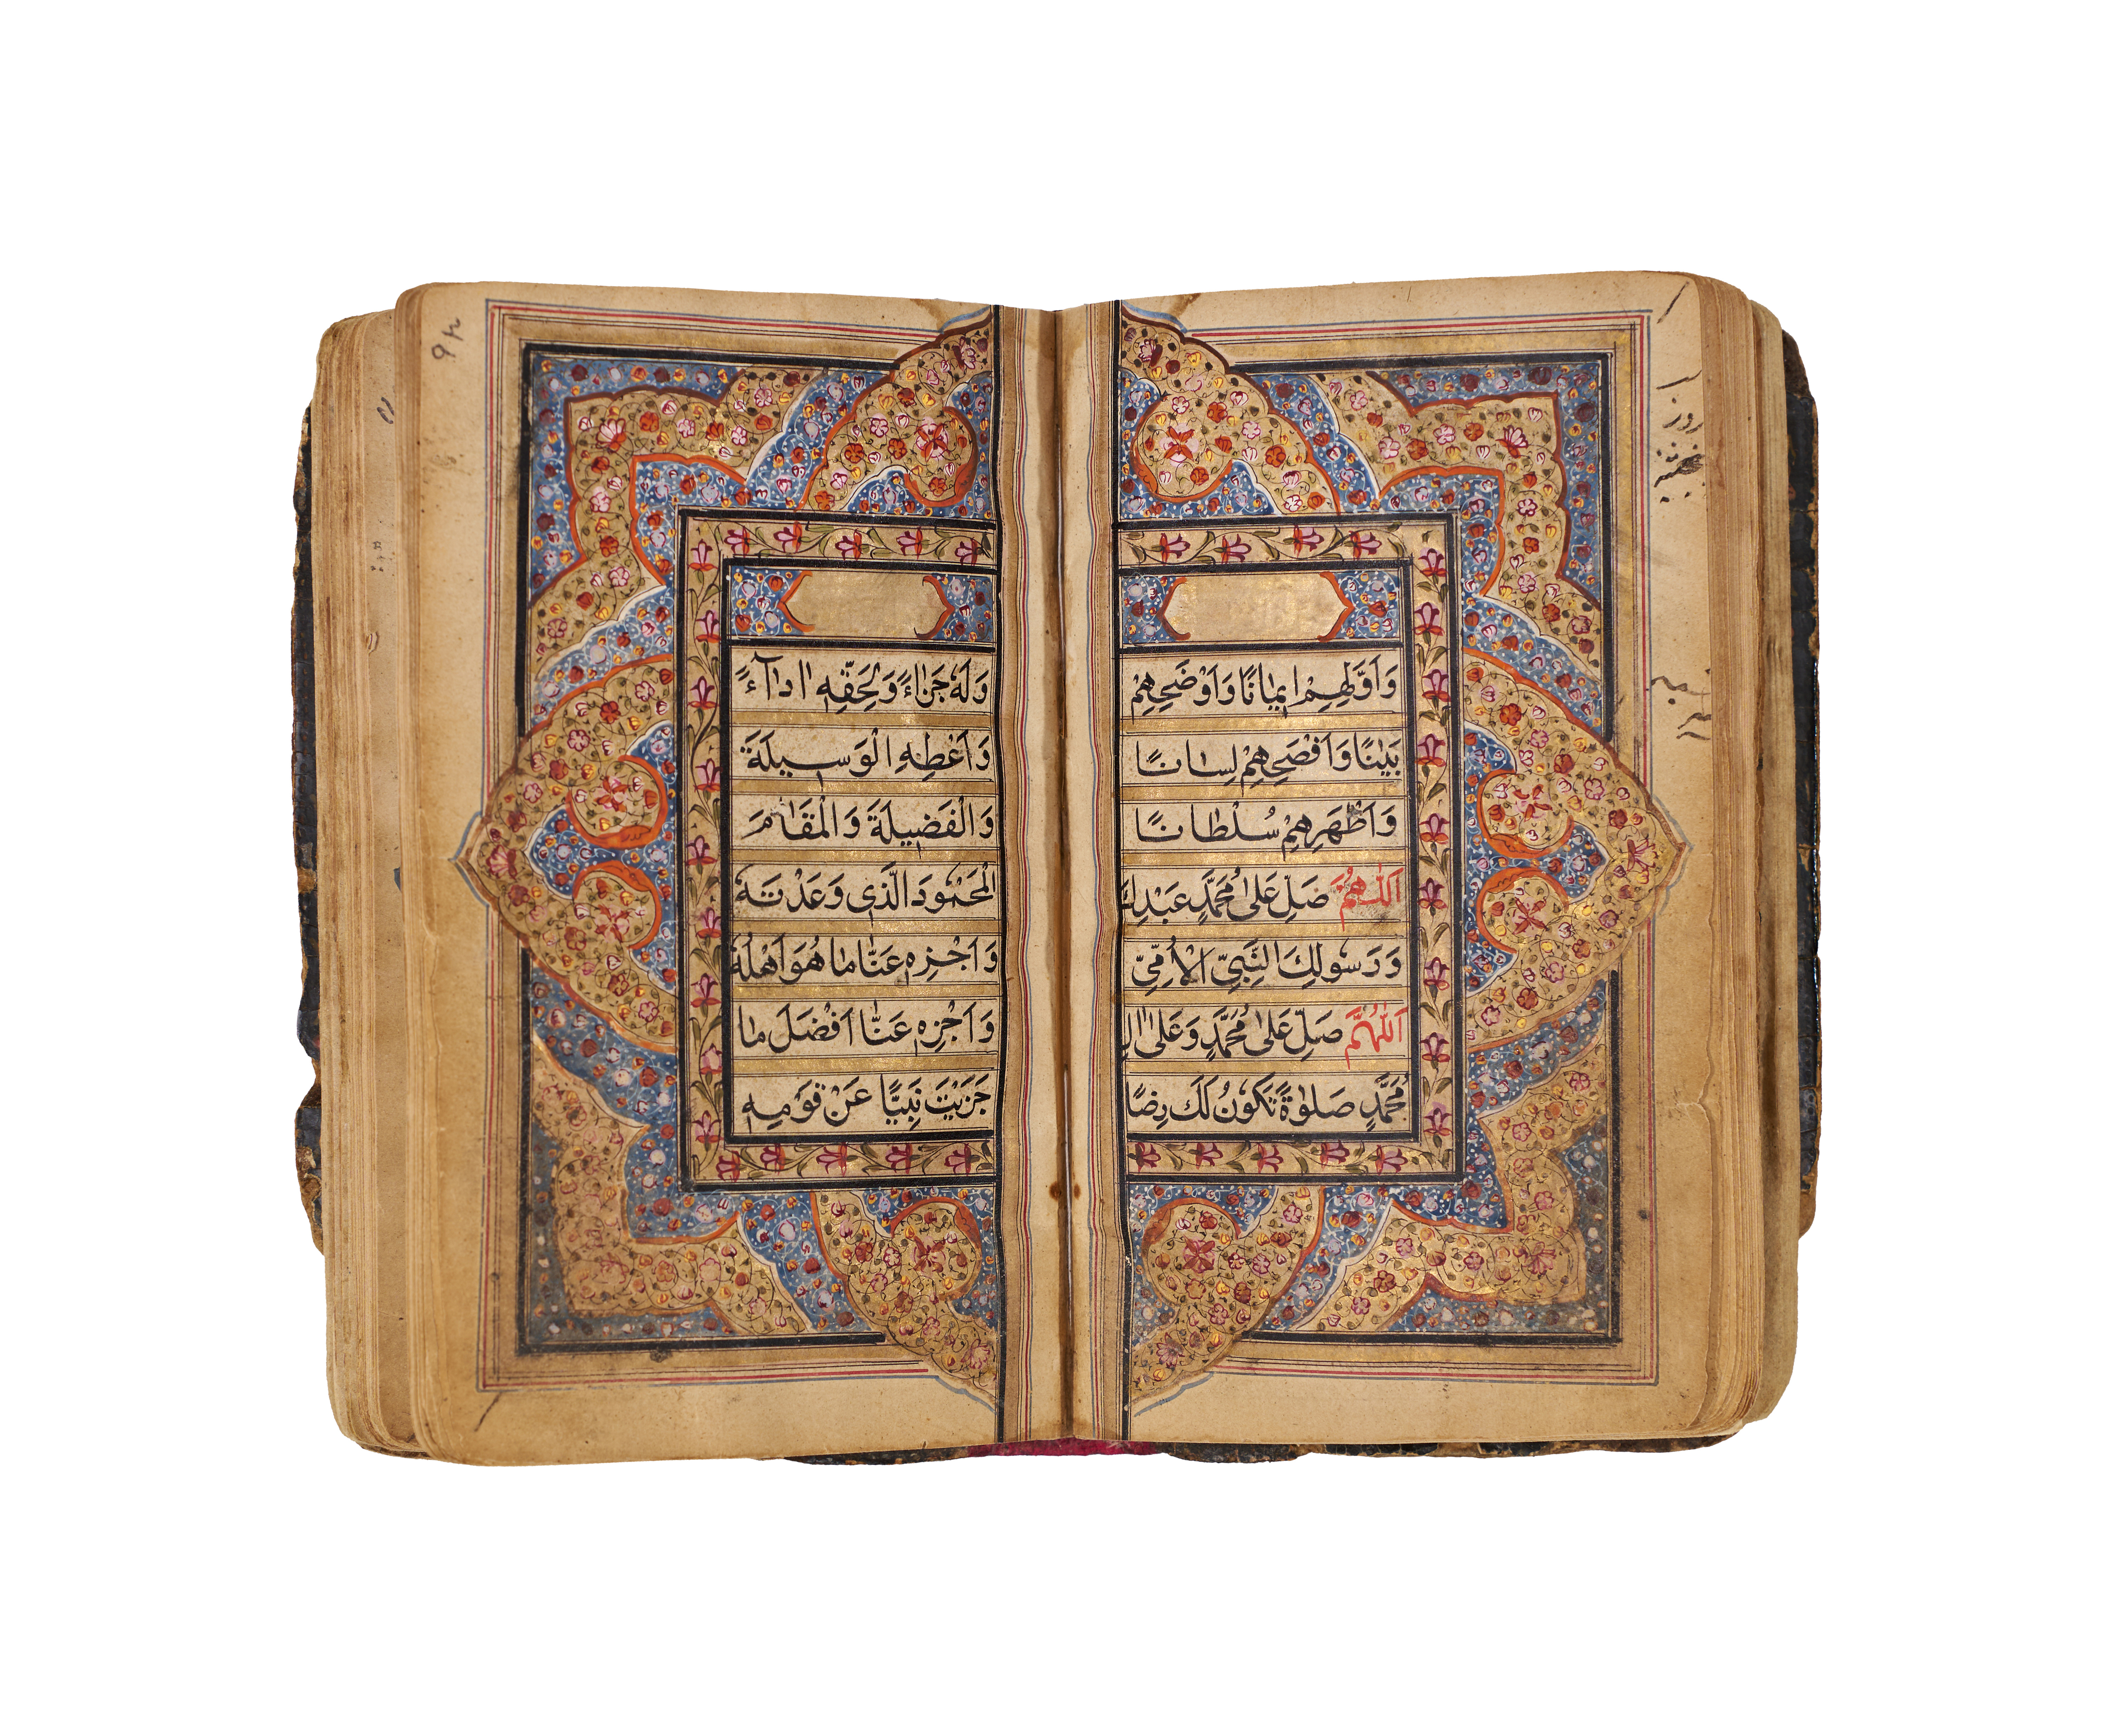 وَاَوَّلِهِمْ اِيمَانًا وَاَوْضَحِهِمْ
بَيَٰنًا وَاَفْصَحِهِمْ لِسَانًا
وَاَظْهَرِهِمْ سُلْطَانًا
اَللّٰهُمَّ صَلِّ عَلىٰ مُحَمَّدٍ عَبْدِكَ
وَرَسُولِكَ النَّبِيِّ الْاُمِّيِّ
اَللّٰهُمَّ صَلِّ عَلىٰ مُحَمَّدٍ وَعَلىٰ اٰلِ
مُحَمَّدٍ صَلٰوةً تَكُونُ لَكَ رِضًا
وَلَهُ جَزَاءً وَلِحَقِّهٖ اَدَآءً
وَاَعْطِهِ الْوَسِيلَةَ
وَالْفَضِيلَةَ وَالْمَقَامَ
الْمَحْمُودَ الَّذِى وَعَدْتَهُ
وَاَجْزِهٖ عَنَّا مَا هُوَ اَهْلُهُ
وَاَجْزِهٖ عَنَّا اَفْضَلَ مَا
جَزَيْتَ نَبِيًّا عَنْ قَوْمِهٖ
روز